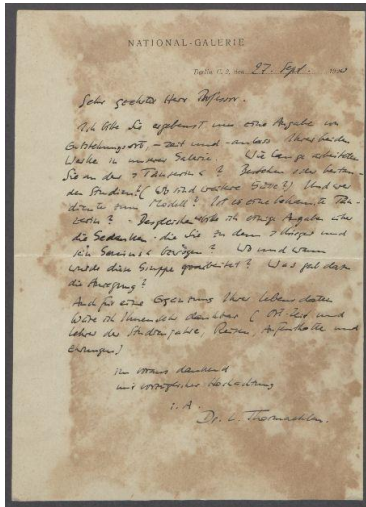 NATIONAL-GALERIE
Berlin C. 2, den 27. Sept. 19
Sehr geehrter Herr Professor.
Ich bitte Sie ergebenst um eine Angabe von
Entstehungsort, -zeit und -anlass Ihrer beiden
Werke in unserer Galerie. Wie lange arbeiteten
Sie an der Tänzerin? Bestehen oder bestan-
den Studien? (Wo sind weitere Güsse?) Und wer
diente zum Modell? Ist es eine bekannte Tän-
zerin? - Desgleichen bitte ich einige Angaben über
die Gedanken - die Sie zu dem und
sein bewogen? Wo und wann
wurde diese Gruppe gearbeitet? Was gab dazu
die Anregung?
Auch für eine Ergänzung Ihrer Lebensdaten
wäre ich Ihnen sehr dankbar (Ort, Zeit und
Lehrer der Studienjahre, Reisen, Aufenthalte und
Ehrungen)
Im voraus dankend
mit vorzüglicher Hochachtung
i. A.
Dr. L. Thormaehlen.